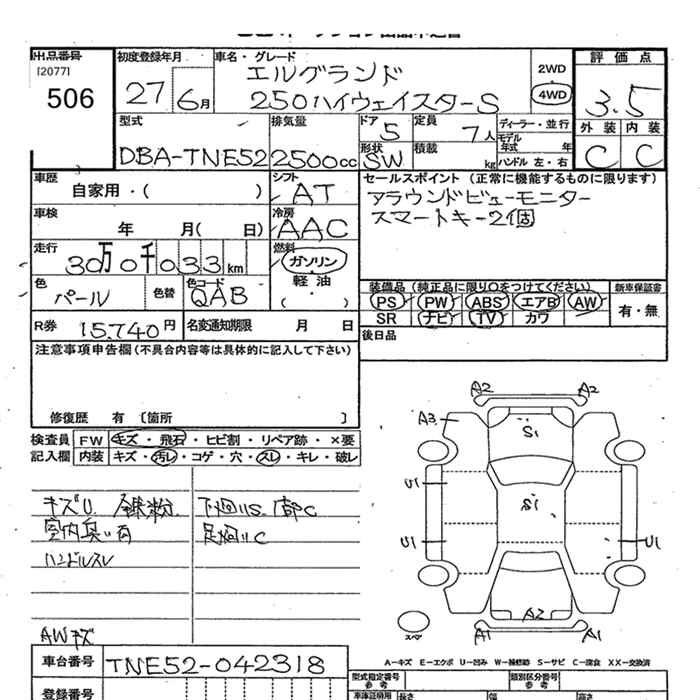 出品番号
[2077]
506
初度登録年月
27 6月
車名・グレード
エルグランド
250ハイウェイスターS
2WD
4WD
評価点
3.5
外装 内装
C C
型式
DBA-TNE52
排気量
2500cc
ドア
5
形状
SW
定員
7人
積載
kg
ディーラー・並行
モデル年式 年
ハンドル 左・右
車歴
自家用・( )
シフト
AT
セールスポイント（正常に機能するものに限ります）
アラウンドビューモニター
スマートキー2個
車検
年 月( 日)
冷房
AAC
走行
30万0千033km
燃料
ガソリン
軽油
・( )
色
パール
色替
色コード
QAB
装備品（純正品に限り○をつけてください）
PS PW ABS エアB AW
SR ナビ TV カワ
新車保証書
有・無
R券 15,740円
名変通知期限 月 日
後日品
注意事項申告欄（不具合内容等は具体的に記入して下さい）
修復歴 有 〔箇所 〕
検査員記入欄
FW キズ・飛石・ヒビ割・リペア跡・×要
内装 キズ・汚レ・コゲ・穴・スレ・キレ・破レ
キズU. 鉄粉. 下廻りS. 一部C
室内臭い有 足廻りC
ハンドルスレ
AWキズ
A2 A2
A3 S1
U1 S1
U1 U1
A2
A1 A1
スペア
A-キズ E-エクボ U-凹み W-補修跡 S-サビ C-腐食 XX-交換済
車台番号 TNE52-042318
型式指定番号
参考
類別区分番号
参考
登録番号
車庫証明用
参考
長さ
幅
高さ